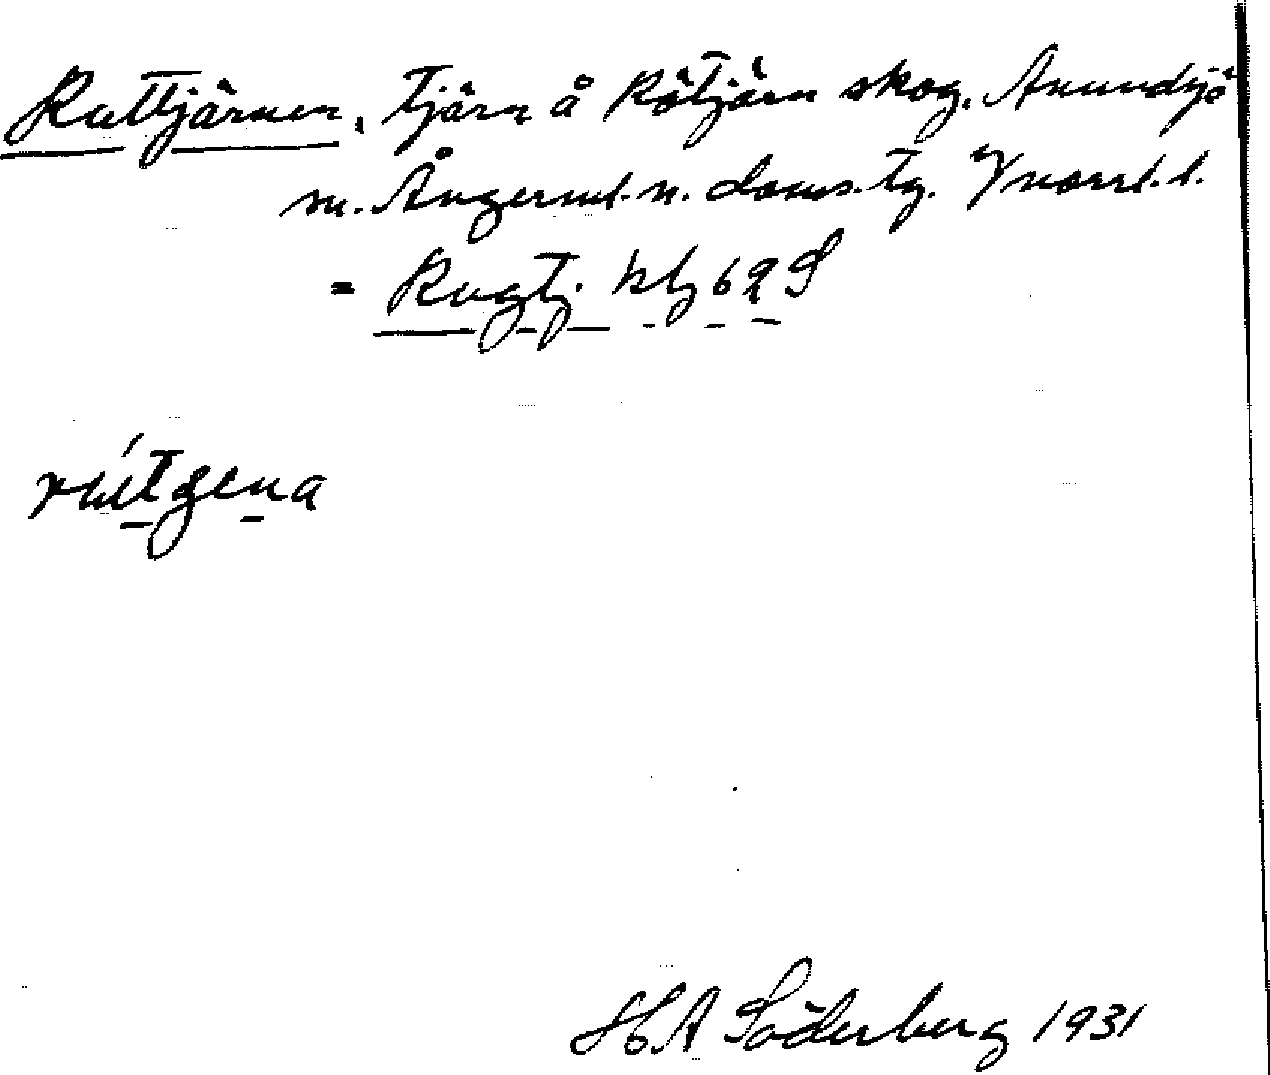 Ruttjärnen, tjärn å Rötjärn skog. Anundsjö
m. Ångerml. n. doms.tg. Vnorrl. l.
= Rugtj. kbl 62 S
rútgena
HA Söderberg 1931